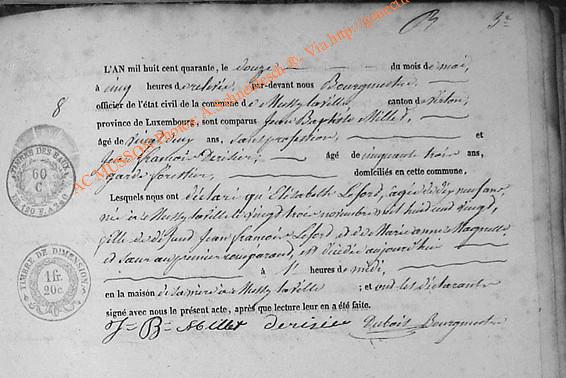 3e
8
L'AN mil huit cent quarante, le douze du mois de mai,
à cinq heures de relevée, par-devant nous Bourgmestre
officier de l'état civil de la commune de Messy la ville canton de Virton,
province de Luxembourg, sont comparus Jean Baptiste Millet,
âgé de vingt deux ans, sans profession, et
Jean François Derisier, âgé de cinquante trois ans,
garde forestier, domiciliés en cette commune,
Lesquels nous ont déclaré qu'Elisabeth Lefort, agée de dix neuf ans,
née à Messy la ville le vingt trois novembre mil huit cent vingt,
fille de défunt Jean François Lefort et de Marie Anne
et Sœur au premier comparant, est décédée aujourd'hui
à 1 heures de midi,
en la maison de sa mère à Messy la ville ; et ont les déclarants
signé avec nous le présent acte, après que lecture leur en a été faite.
J. B. Millet derisier Dubois Bourgmestre
TIMBRE DES
60
C.
TIMBRE DE DIMENSION
1 fr.
20c
AC MUSSON Photos A.Schneidesch ®. Via http://